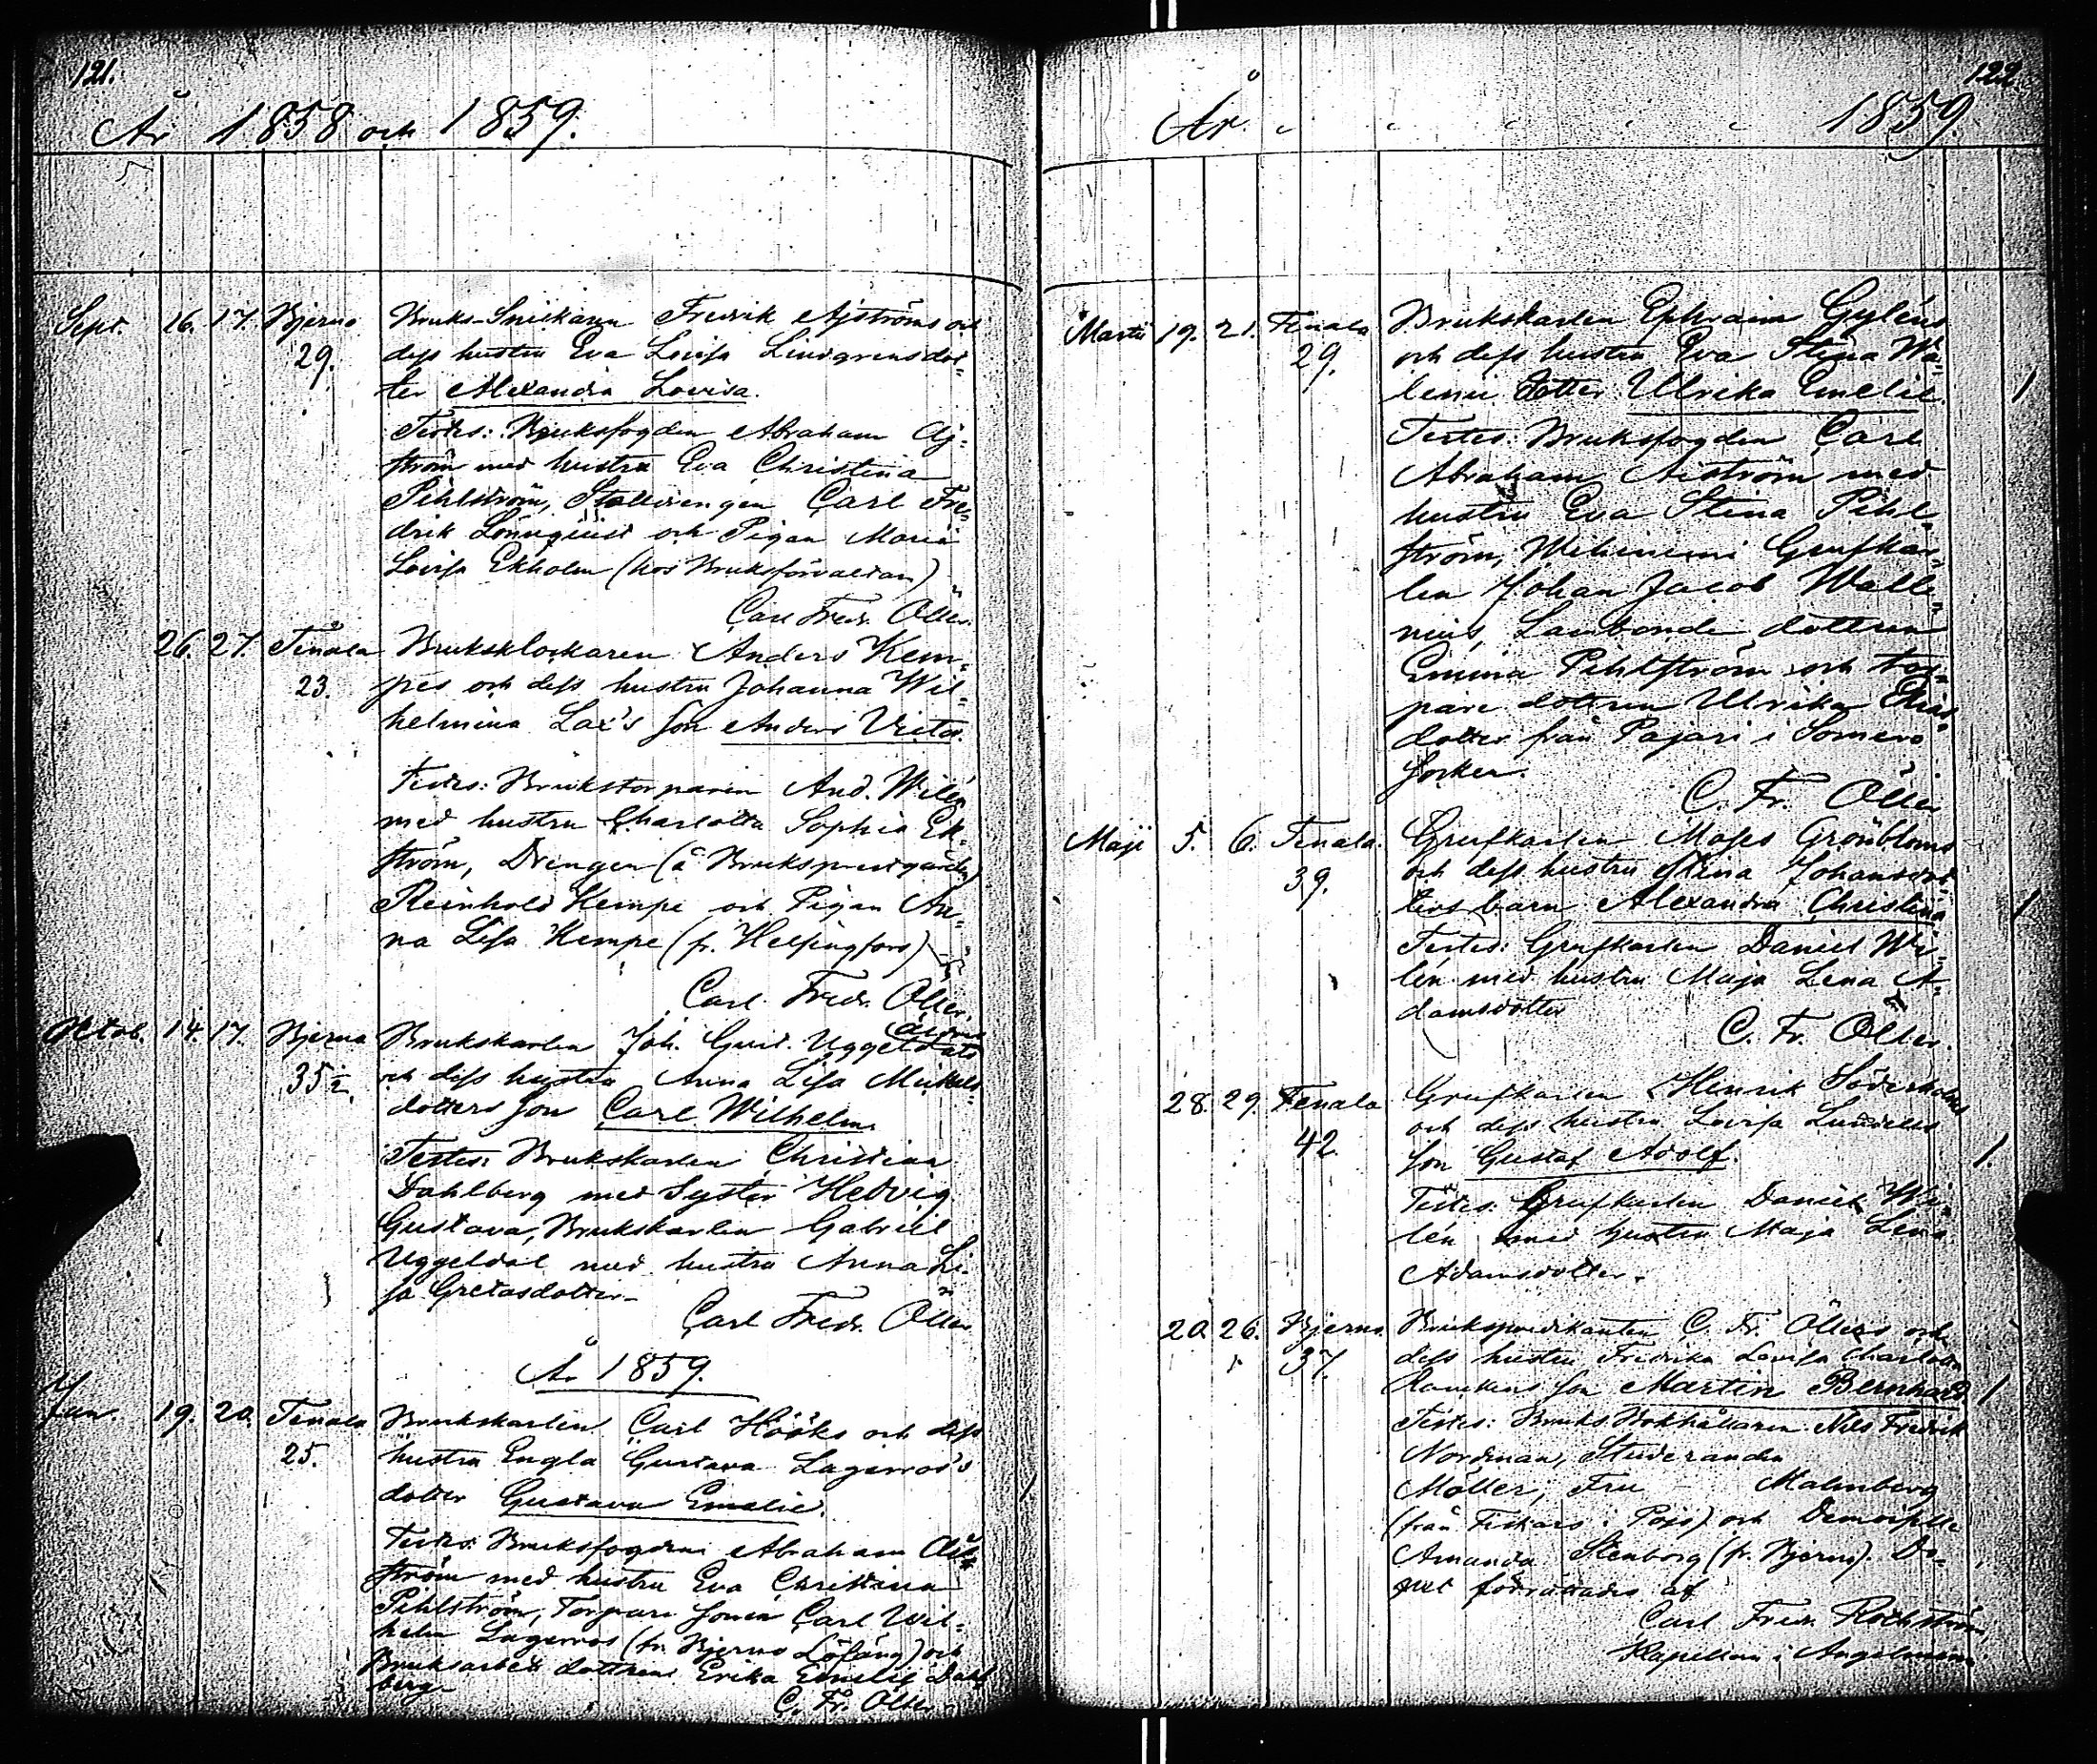 121.
År 1858 och 1859.
Sept. 16. 17. Bjerno Bruks-Snickaren Fredrik Ajströms och
29. dess hustru Eva Lovisa Lindgrens dot-
ter Alexandra Lovisa.
Testes: Bruksfogden Abraham Aj-
ström med hustru Eva Christina
Pihlström, Stalldrengen Carl Fre-
drik Lönnqvist och Pigan Maria
Lovisa Ekholm (hos Bruksförvaltarn)
Carl Fredr. Öller.
26. 27. Tenala Bruksklockaren Anders Kem-
23. pes och dess hustru Johanna Wil-
helmina Lax's son Anders Victor.
Testes: Brukstorparen And. Wilén
med hustru Charlotta Sophia Ek-
ström, Drengen (å Bruksprestgården)
Reinhold Kempe och Pigan An-
na Lisa Kempe (fr. Helsingfors)
Carl Fredr. Öller.
Octob. 14. 17. Bjerno Brukskarlen Joh. Gust. Uggeldals
35 1/2. och dess hustru Anna Lisa Mickels-
dotters son Carl Wilhelm.
Testes: Brukskarlen Christian
Dahlberg med Syster Hedvig
Gustava, Brukskarlen Gabriel
Uggeldal med hustru Anna Li-
sa Gretasdotter.
Carl Fredr. Öller.
År 1859.
Jan. 19. 20. Tenala Brukskarlen Carl Hööks och dess
25. hustru Engla Gustava Lagerroos's
dotter Gustava Emelie.
Testes: Bruksfogden Abraham Aij-
ström med hustru Eva Christina
Pihlström, Torpare sonen Carl Wil-
helm Lagerroos (fr. Bjerno Löfäng) och
Bruksarbet. dottren Erika Emelie Dahl-
berg.
C. Fr. Öller
122.
År 1859.
Martii 19. 21. Tenala Brukskarlen Ephraim Gyléns
29. och dess hustru Eva Stina Wa-
lenii dotter Ulrika Emelie. 1
Testes: Bruksfogden Carl
Abraham Aiström med
hustru Eva Stina Pihl-
ström, Grufkar-
len Johan Jacob Walle-
nius, Lanbonde dottren
Emma Pihlström och tor-
pare dottren Ulrika Elias-
dotter från Pajari i Somero
socken.
C. Fr. Öller
Maji 5. 6. Tenala. Grufkarlen Moses Grönbloms
39. och dess hustru Stina Johansdot-
ters barn Alexandra Christina 1
Testes: Grufkarlen Daniel Wi-
lén med hustru Maja Lena A-
damsdotter
C. Fr. Öller.
28. 29. Tenala Grufkarlen Henrik Söderholms
42. och dess hustru Lovisa Lundells
son Gustaf Adolf. 1.
Testes: Grufkarlen Daniel Wi-
lén med hustru Maja Lena
Adamsdotter.
20. 26. Bjerno. Brukspredikanten C. Fr. Öllers och
37. dess hustru Fredrika Lovisa Charlotta
son Martin Bernhard. 1
Testes: Bruks Bokhållaren Nils Fredrik
Nordman, Studeranden
Möller, Fru – Malmberg
(från Fiskars i Pojo) och Demoiselle
Amanda Stenborg (fr. Bjerno). Do-
pet förrättades af
Carl Fredr. Rothström,
Kapellan i Angelniemi.